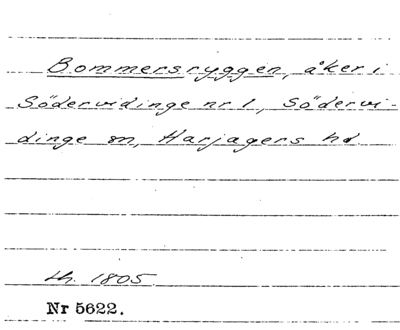 Bommersryggen, åker i
Södervidinge nr 1, Södervi-
dinge sn, Harjagers hd
Lh. 1805
Nr 5622.